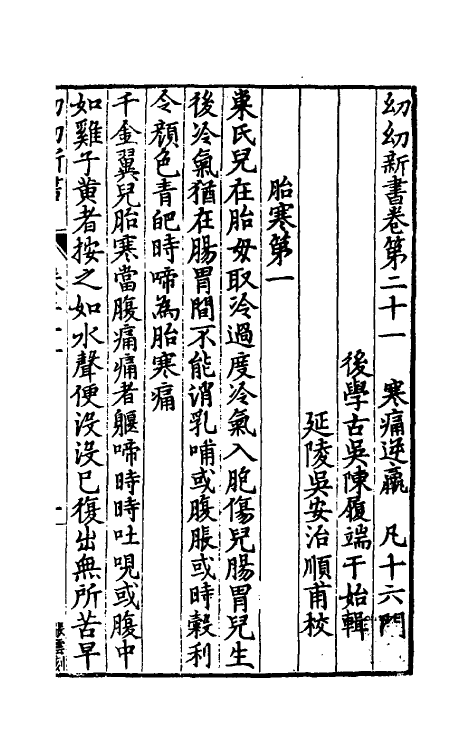 幼幼新書卷第二十一　寒痛逆羸　凡十六門
後學古吳陳履端于始輯
延陵吳安治順甫校
胎寒第一
巢氏兒在胎母取冷過度冷氣入胞傷兒腸胃兒生
後冷氣猶在腸胃間不能消乳哺或腹脹或時穀利
令顏色青皅時啼為胎寒痛
千金翼兒胎寒當腹痛痛者軀啼時時吐哯或腹中
如雞子黃者按之如水聲便沒沒已復出無所苦早
幼幼新書